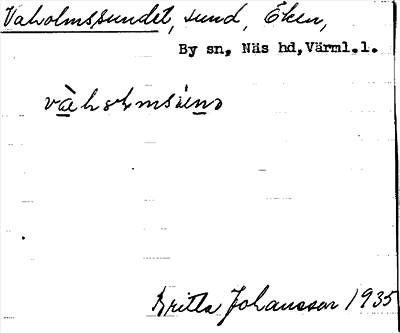 Vaholmssundet, sund, Eken,
By sn, Näs hd, Värml.l.
Britta Johansson 1935